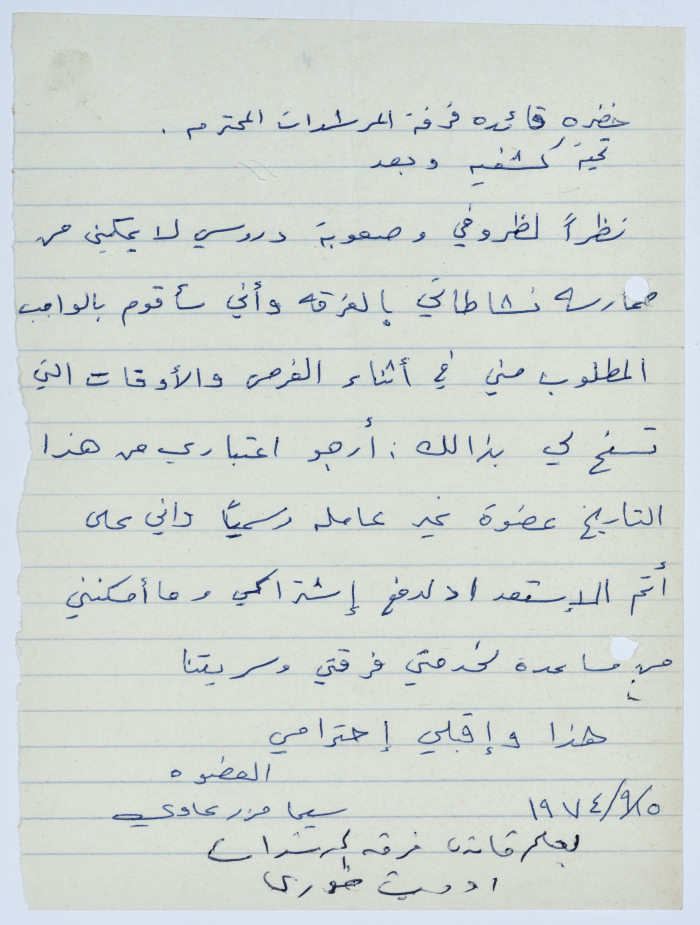 حضره قائده فرقة المرشدات المحترم .
تحية كشفيه وبعد
نظراً لظروفي وصعوبة دروسي لا يمكنني من
ممارسه نشاطاتي بالفرقه وأني سأقوم بالواجب
المطلوب مني في أثناء الفرص والأوقات التي
تسنح لي بذالك : أرجو اعتباري من هذا
التاريخ عضوة غير عامله رسمياً واني على
أتم الإستعداد لدفع إشتراكي وما أمكنني
من مساعدة لخدمتي فرقتي وسريتنا
هذا وإقبلي إحترامي
العضوه
١٩٧٤/٩/١٥ سيما
بعلم قائده فرقه المرشدات
اوديت خوري